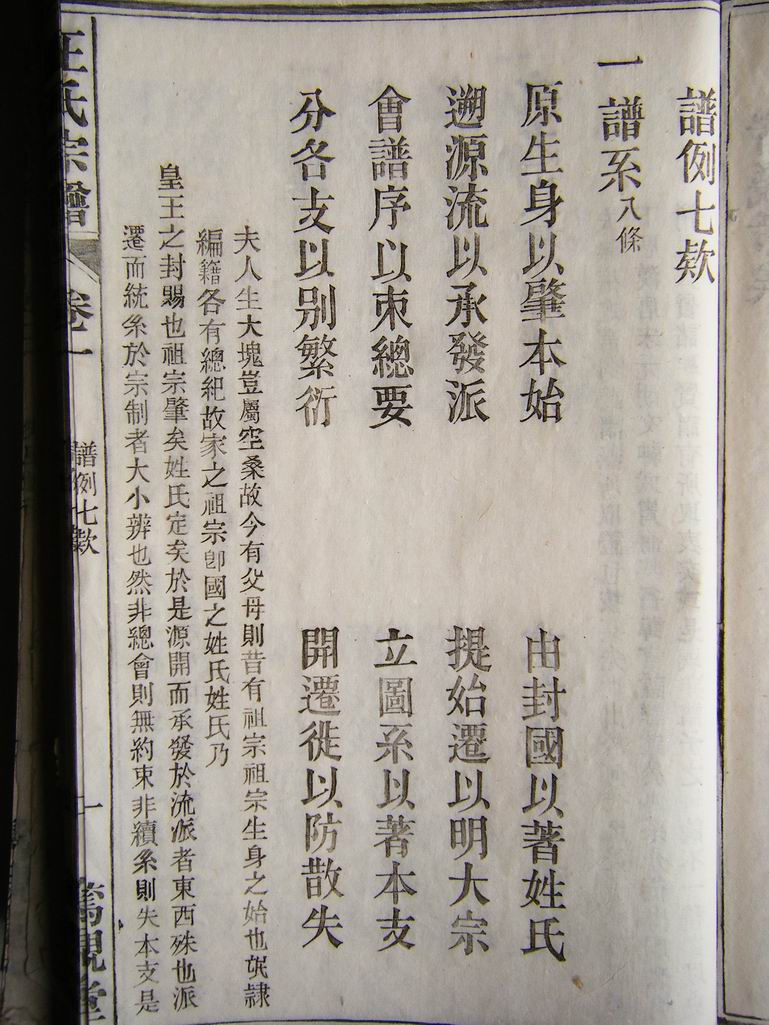 譜例七欵
一譜系八條
原生身以肇本始　由封國以著姓氏
遡源流以承發派　提始遷以明大宗
會譜序以朿總要　立圖系以著本支
分各支以别繁衍　開遷徙以防散失
夫人生大塊豈屬空桑故今有父母則昔有祖宗祖宗生身之始也氓隷
編籍各有總紀故家之祖宗卽國之姓氏姓氏乃
皇王之封賜也祖宗肇矣姓氏定矣於是源開而承發於流派者東西殊也派
遷而統系於宗制者大小辨也然非總會則無約束非續系則失本支是
汪氏宗譜
卷一
譜例七欵
一
篤親堂